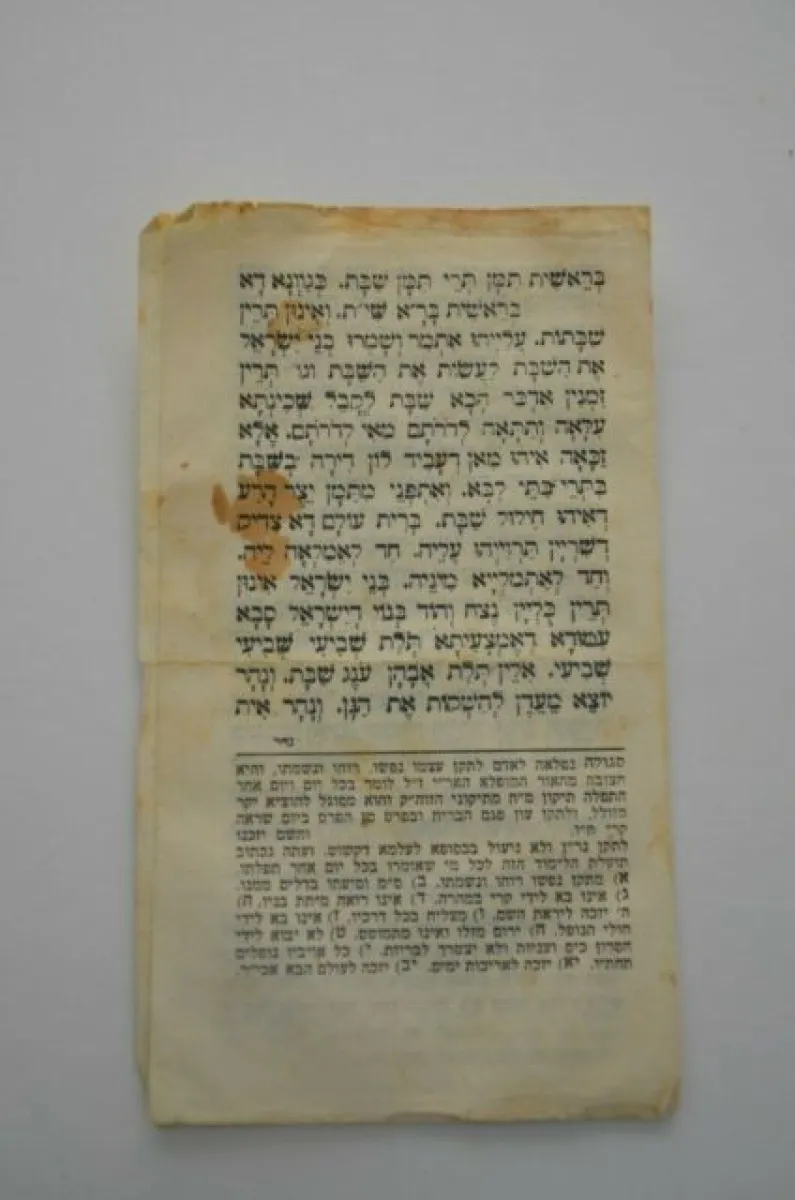 בְּרֵאשִׁית תַּמָּן תְּרֵי תַּמָּן שַׁבָּת. כְּגַוְונָא דָא
בראשִׁית בָּרָ״א שִׁי״ת. וְאִינוּן תְּרֵין
שַׁבָּתוֹת. עֲלַיְיהוּ אִתְּמַר וְשָׁמְרוּ בְּנֵי יִשְׂרָאֵל
אֶת הַשַּׁבָּת לַעֲשׂוֹת אֶת הַשַּׁבָּת וגו׳ תְּרֵין
זִמְנִין אִדְכַּר הָכָא שַׁבָּת לָקֳבֵל שְׁכִינְתָּא
עִלָּאָה וְתַתָּאָה לְדֹרֹתָם מַאי לְדֹרֹתָם. אֶלָּא
זַכָּאָה אִיהוּ מַאן דְּעָבִיד לוֹן דִּירָה בְּשַׁבָּת
בִּתְרֵי בָּתֵּי לִבָּא. וְאִתְפְּנֵי מִתַּמָּן יֵצֶר הָרָע
דְּאִיהוּ חִילּוּל שַׁבָּת. בְּרִית עוֹלָם דָּא צַדִּיק
דְּשַׁרְיָין תַּרְוַיְיהוּ עֲלֵיהּ. חַד לְאַמְלָאָה לֵיהּ.
וְחַד לְאִתְמַלְּיָיא מִינֵּיהּ. בְּנֵי יִשְׂרָאֵל אִינוּן
תְּרֵין כְּלַיִין נֵצַח וְהוֹד בְּגוֹי דְּיִשְׂרָאֵל סָבָא
עַמּוּדָא דְּאֶמְצָעִיתָא תְּלַת שְׁבִיעִי שְׁבִיעִי
שְׁבִיעִי. אִלֵּין תְּלַת אֲבָהָן עֹנֶג שַׁבָּת. וְנָהָר
יוֹצֵא מֵעֵדֶן לְהַשְׁקוֹת אֶת הַגָּן. וְנָהָר אִית
נהר
סגולה נפלאה לאדם לתקן עצמו נפשו, רוחו ונשמתו, והיא
חצובה מהאור המופלא האר״י ז״ל לומר בכל יום ויום אחר
התפלה תיקון מ״ח מתיקוני הזוה״ק והוא מסוגל להוציא יקר
מזולל, ולתקן עון פגם הברית ובפרט מן הפרט ביום שראה
קרי ח״ו. והשם יזכנו
לתקן נר״ן ולא ניעול בכסופא לעלמא דקשוט. ועתה נכתוב
תועלת הלימוד הזה לכל מי שאומרו בכל יום אחר תפלתו.
א) מתקן נפשו רוחו ונשמתו. ב) ס״מ וסיעתו בדלים ממנו.
ג) אינו בא לידי קרי במהרה. ד) אינו רואה מיתת בניו. ה)
ה׳ יזכה ליראת השם. ו) מצליח בכל דרכיו. ז) אינו בא לידי
חולי הנופל. ח) ירום מזלו ואינו מתמוטט. ט) לא יבוא לידי
חסרון כיס ועניות ולא יצטרך לבריות. י) כל אויביו נופלים
תחתיו. יא) יזכה לאריכות ימים. יב) יזכה לעולם הבא אכי״ר.